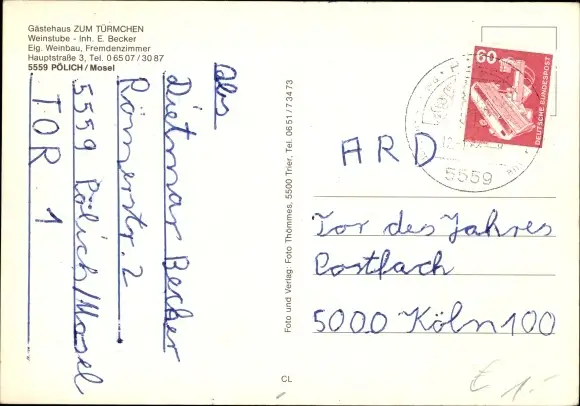 Gästehaus ZUM TÜRMCHEN
Weinstube - Inh. E. Becker
Eig. Weinbau, Fremdenzimmer
Hauptstraße 3, Tel. 0 65 07 / 30 87
5559 PÖLICH / Mosel
Abs
Dietmar Becker
Römerstr. 2
5559 Pölich/Mosel
TOR 1
Foto und Verlag: Foto Thömmes, 5500 Trier, Tel. 06 51 / 7 34 73
CL
60
DEUTSCHE BUNDESPOST
5559
ARD
Tor des Jahres
Postfach
5000 Köln 100
€ 1,-